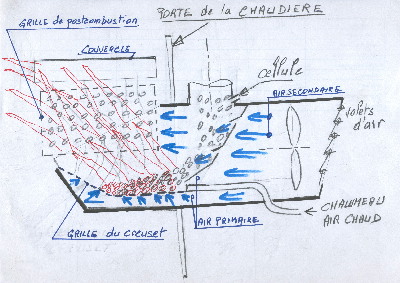 PORTE de la CHAUDIERE
GRILLE de postcombustion
COUVERCLE
cellule
AIR SECONDAIRE
volets
d'air
GRILLE du creuset
AIR PRIMAIRE
CHALUMEAU
AIR CHAUD